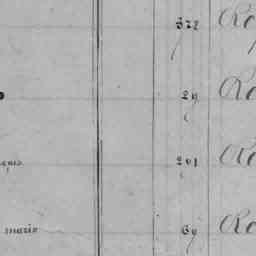 322 Ro
29 Ro
ques 201 Ro
marie 69 Ro